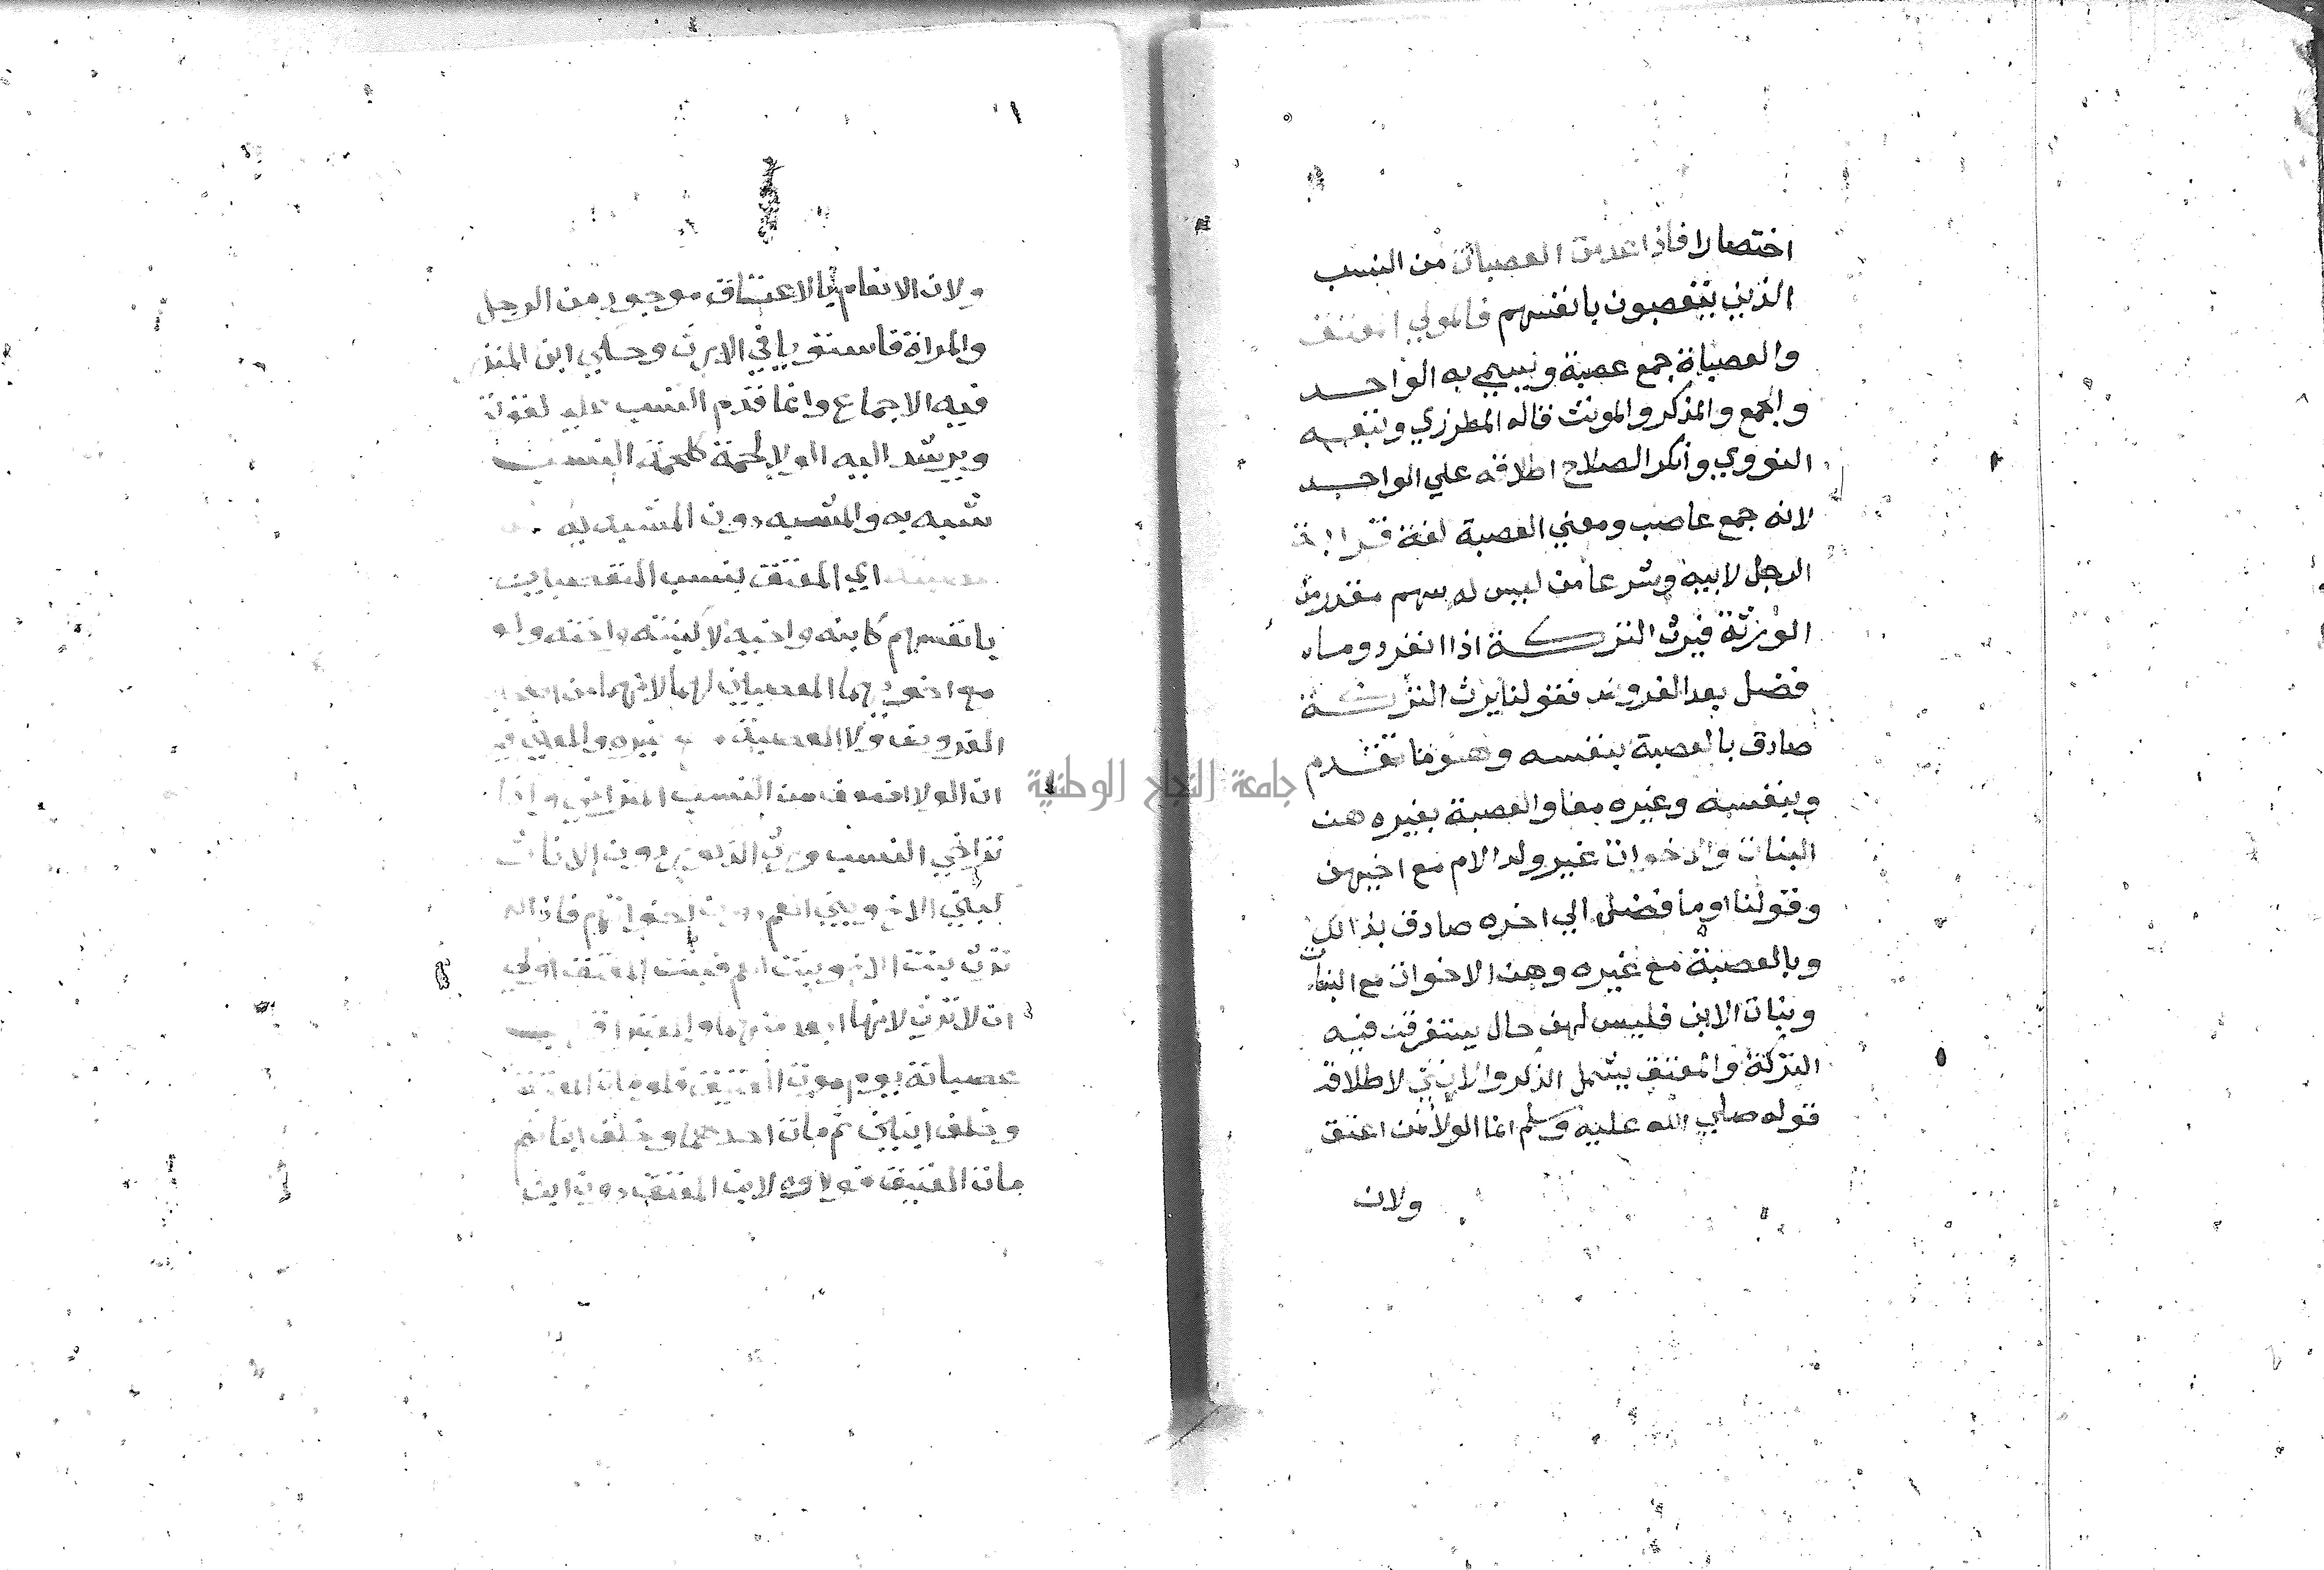 اختصارا فاذا عدمت العصبات من النسب
الذين يتعصبون بانفسهم فالمولي المعتق
والعصباة جمع عصبة ويسمي به الواحد
والجمع والمذكر والمونث قاله المطرزي وتبعه
النووي وأنكر الصلاح اطلاقه علي الواحد
لانه جمع عاصب ومعني العصبة لغة قرابة
الرجل لابيه وشرعا من ليس له سهم مقدر من
الورثة فيرث التركة اذا انفرد وما
فضل بعد الفروض فقولنا يرث التركة
صادق بالعصبة بنفسه وهو ما تقدم
وبنفسه وغيره معا والعصبة بغيره هن
البنات والاخوات غير ولد الام مع اخيهن
وقولنا او ما فضل الي اخره صادق بذالك
وبالعصبة مع غيره وهن الاخوات مع البنات
وبنات الابن فليس لهن حال يستغرقن فيه
التركة والمعتق يشمل الذكر والانثي لاطلاق
قوله صلي الله عليه وسلم انما الولا لمن اعتق
ولان
ولان الانعام بالاعتاق موجود من الرجل
والمراة فاستويا في الارث وحكي ابن المنذر
فيه الاجماع وانما قدم النسب عليه لقوته
ويرشد اليه الولا لحمة كلحمة النسب
شبه به والمشبه دون المشبه به
اي المعتق بنسب المتعصبين
بانفسهم كابنه واخيه لا كبنته واخته ولو
مع اخويهما المعصبين لهما لانهما من اصحاب
الفروض ولا العصبة مع غيره والمعني فيه
ان الولا اضعف من النسب المتراخي واذا
تراخي النسب ورث الذكور دون الاناث
كبني الاخ وبني العم دون اخواتهم فاذا لم
ترث بنت الاخ وبنت العم فبنت المعتق اولي
ان لا ترث لانها ابعد منهما والمعتبر اقرب
عصباته يوم موت العتيق فلو مات المعتق
وخلف ابنين ثم مات احدهما وخلف ابنا ثم
مات العتيق فولاوه لابن المعتق دون ابن
جامعة النجاح الوطنية